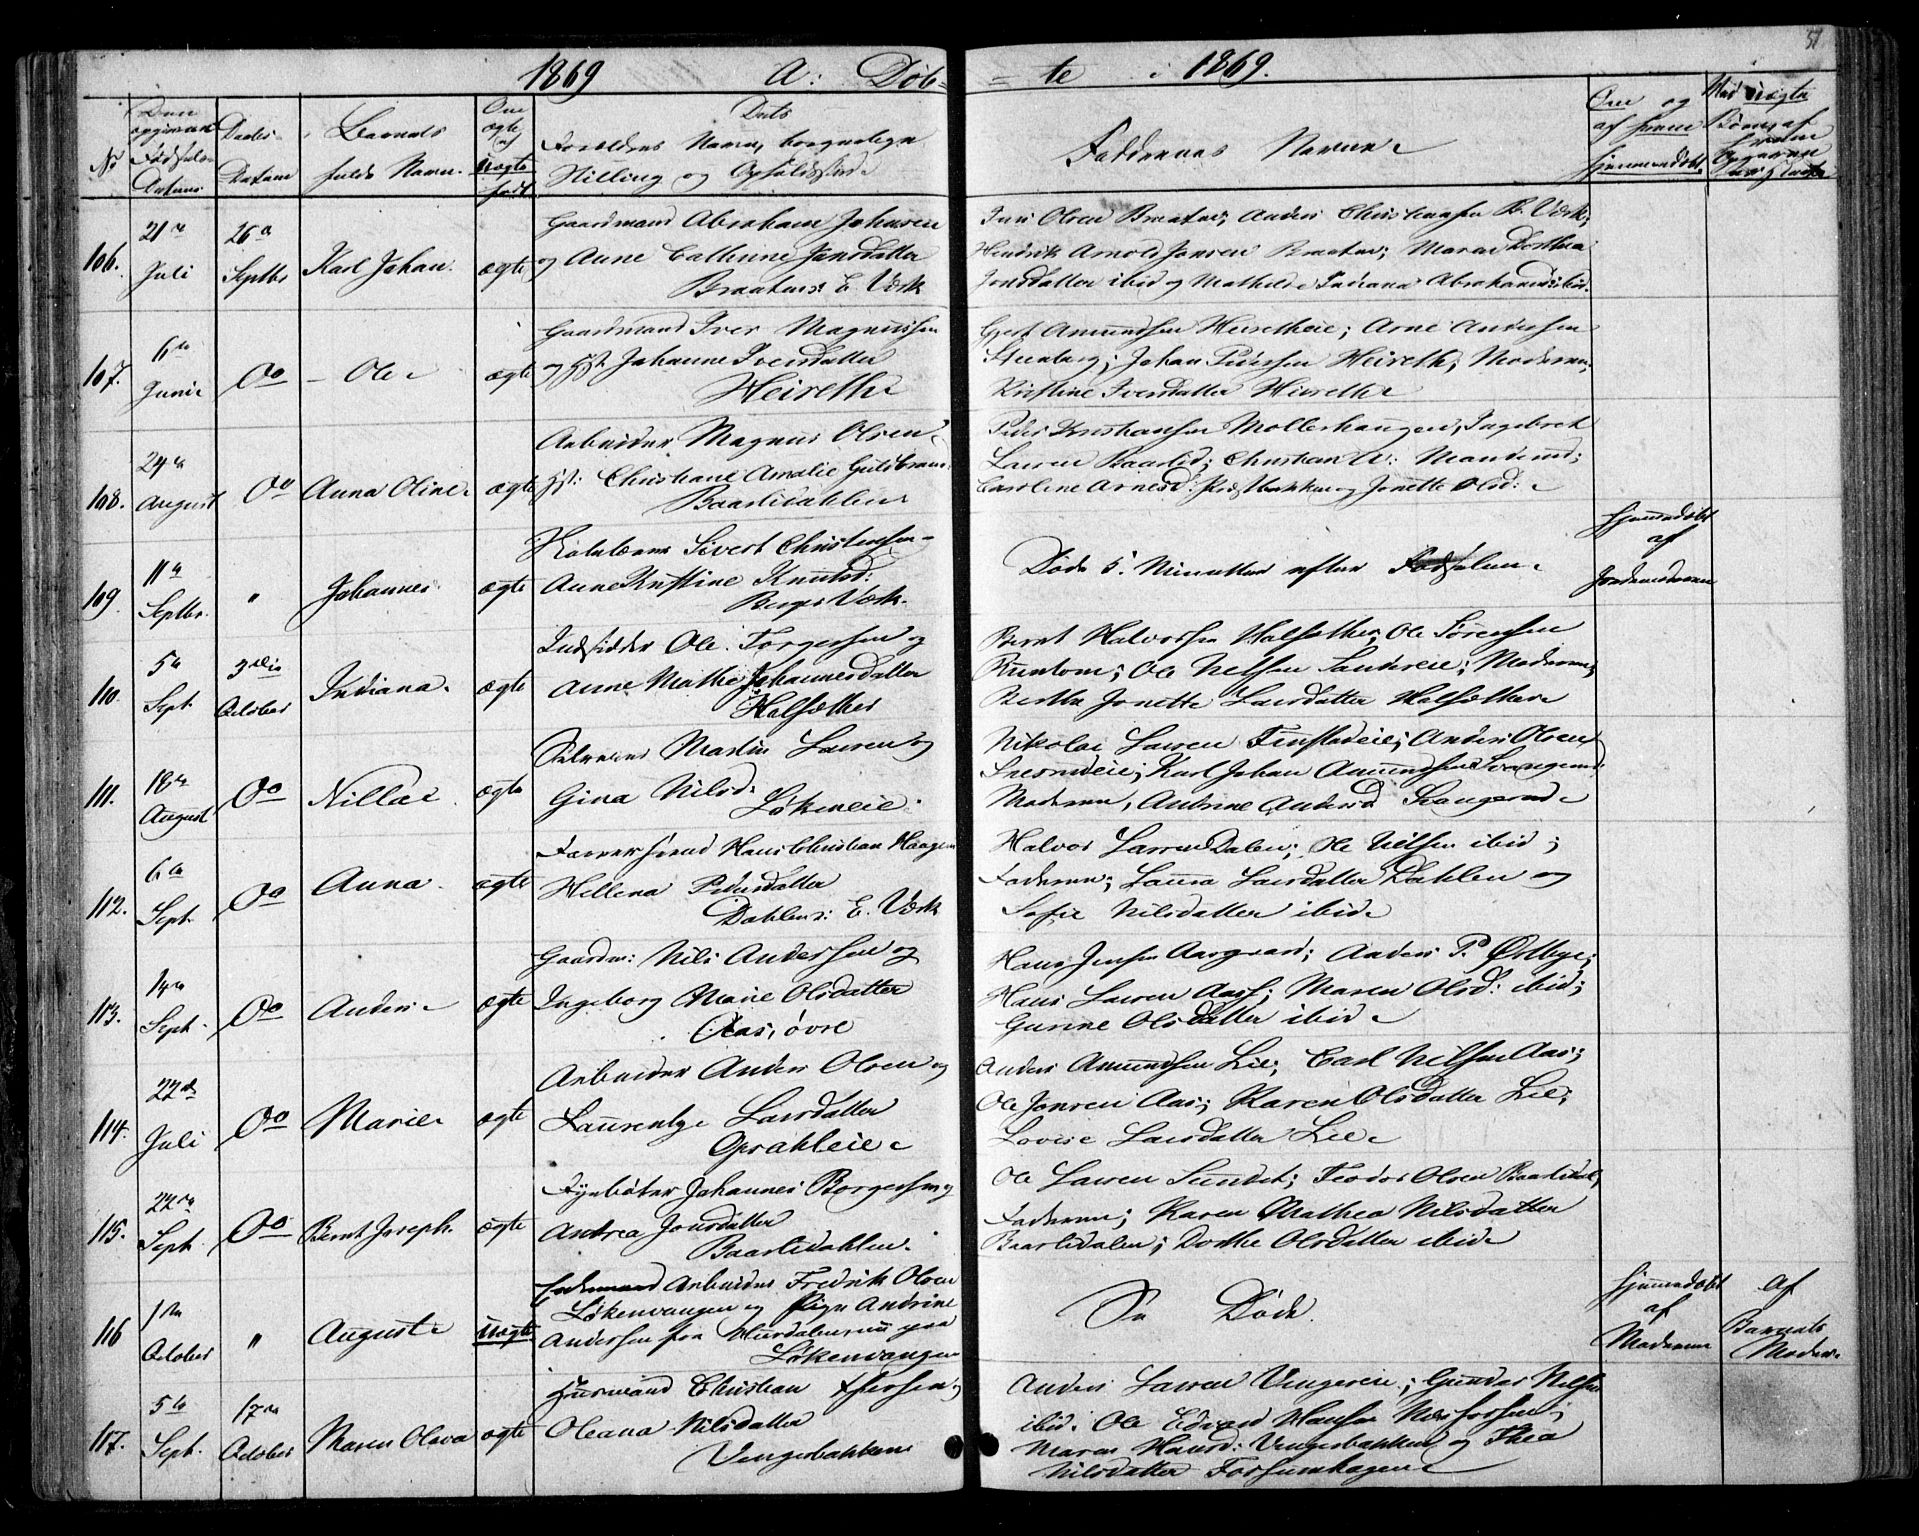 51
1869 A: Døb= =te i 1869.
No
Døbt Datum
Barnets fulde Navn.
Om ægte el uægte født
Dets Forældres Navn, borgerlige Stilling og Opholdssted
Faddernes Navne
Om og af hvem hjemmedøbt
Ved uægte Børn, af hvem
106. 21de Juli 26de Septbr Karl Johan. ægte
Gaardmand Abraham Johnsen
og Anne Cathrine Jensdatter
Braaten: E. Værk
Olsen Braaten; Anders Christiansen B. Værk;
Hendrik Arnold Jonsen Braaten; Maren Dorthea
Jonsdatter ibid og Mathilde Indiana Abrahamsd ibid.
107. 6te Junie Do Ole ægte
Gaardmand Iver Magnussen
og Hst Johanne Iversdatter
Heireth
Gjert Amundsen Heiretheie; Arne Andersen
Stenberg; Johan Pedersen Heireth; Moderen;
Kristine Iversdatter Heireth
108. 24de August Do Anna Oline ægte
Arbeider Magnus Olsen
Hst: Christiane Amalie Guldbrands:
Baarlidahlen
Peder Kristiansen Mollerhaugen, Ingebret
Larsen Baarlid; Christian A: Manderud;
Caroline Arnesd: og Jonette Olsd:
109 11te Septbr. " Johannes. ægte
Sivert Christensen
Anne Kristine Knudsd:
Bergs Værk.
Døde 5. Minutter efter Fødselen
hjemmedøbt
af
Jordemoderen
110. 5te Sept. 3die October Indiana. ægte
Indsidder Ole Torgersen og
Anne Mathe Johannesdatter
Holsæther
Bernt Halvorsen Holsæther, Ole Sørensen
Runtom; Ole Nilsen Sandereie; Moderen;
Berthe Jonette Larsdatter Holsæther
111. 18de August Do Nilla ægte
Martin Larsen og
Gina Nilsd:
Løkeneie
Nikolai Larsen Finstadeie; Anders Olsen
Karl Johan Amundsen Svangerud
Moderen, Antrine Andersd Svangerud
112. 6te Sept. Do Anna ægte
Hans Christian Haagen
Hellena Pedersdatter
Dahlen: E. Værk
Halvor Larsen Dalen; Ole Nilsen ibid;
Faderen; Laura Larsdatter Dahlen og
Sofie Nilsdatter ibid
113. 14de Sept. Do Anders ægte
Gaardm: Nils Andersen og
Ingeborg Marie Olsdatter
Aas, øvre
Hans Jensen Aasgaard; Anders P. Østbye;
Hans Larsen Aas; Maren Olsd: ibid;
Gunne Olsdatter ibid
114. 22de Juli Do Marie ægte
Arbeider Anders Olsen og
Laurentze Larsdatter
Opsahleie
Anders Amundsen Lie; Carl Nilsen Aas;
Ole Jonsen Aas; Karen Olsdatter Lie;
Lovise Larsdatter Lie
115. 22de Sept Do Bernt Joseph. ægte
Fyrbøter Johannes Borgersen og
Andrea Jonsdatter
Baarlidahlen.
Ole Larsen Sundet; Teodor Olsen Baarlidal,
Faderen; Karen Mathea Nilsdatter
Baarlidalen; Dorthe Olsdatter ibid
116 1ste October " August uægte
Arbeider Fredrik Olsen
Løkenvangen og Pige Andrine
Andersen fra Hurdalen nu paa
Løkenvangen
Er Døde.
hjemmedøbt
af
Moderen
Af
Barnets
Moder
117. 5te Sept. 17de October Maren Olava ægte
Husmand Christian og
Oleana Nilsdatter
Vengerbakken
Anders Larsen Vengereie; Gunder Nilsen
ibid. Ole Edvard Hansen
Maren Hansd: Vengerbakken og Thea
Nilsdatter Forsumhagen